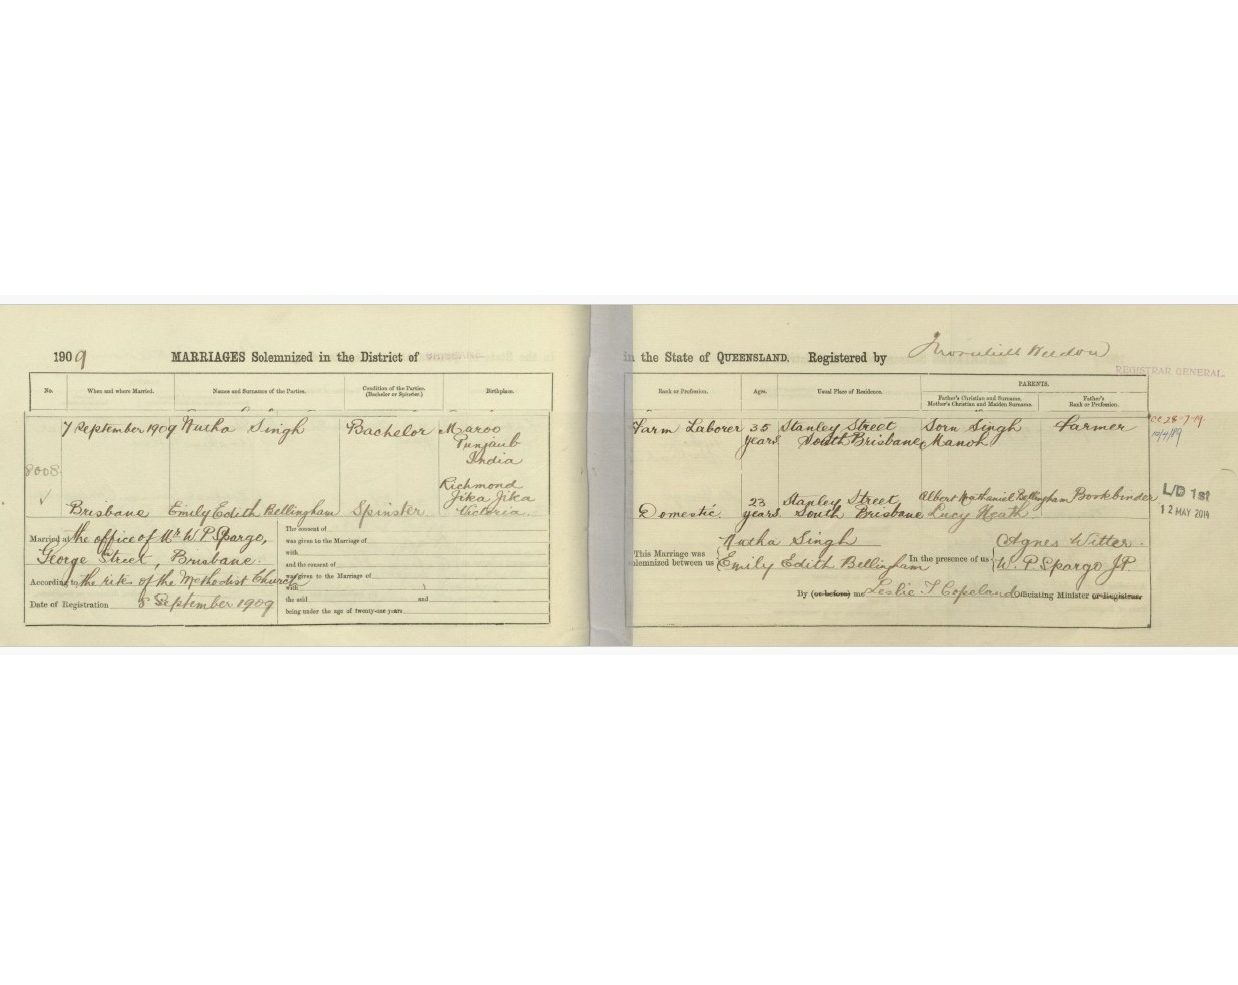 1909 MARRIAGES Solemnized in the District of
in the State of QUEENSLAND. Registered by
REGISTRAR GENERAL.
No.
When and where Married.
Names and Surnames of the Parties.
Condition of the Parties.
(Bachelor or Spinster.)
Birthplace.
Rank or Profession.
Ages.
Usual Place of Residence.
PARENTS.
Father's Christian and Surname.
Mother's Christian and Maiden Surname.
Father's
Rank or Profession.
7 September 1909
Nutha Singh
Bachelor
Maroo
Punjaub
India
Farm Laborer
35
years
Stanley Street
South Brisbane
Sorn Singh
Manoh
Farmer
8008
✓
Brisbane
Emily Edith Bellingham
Spinster
Richmond
Jika Jika
Victoria
Domestic.
23
years
Stanley Street
South Brisbane
Albert Nathaniel Bellingham
Lucy Heath
Bookbinder
L/D 1st
12 MAY 2014
Married at the office of Mr W. P. Spargo,
George Street, Brisbane.
According to the rites of the Methodist Church
Date of Registration 8 September 1909
The consent of
was given to the Marriage of
with
and the consent of
was given to the Marriage of
with
the said and
being under the age of twenty-one years
This Marriage was
solemnized between us
Nutha Singh
Emily Edith Bellingham
In the presence of us
Agnes Witter.
W. P. Spargo J.P.
By (or before) me Leslie T Copeland Officiating Minister or Registrar.